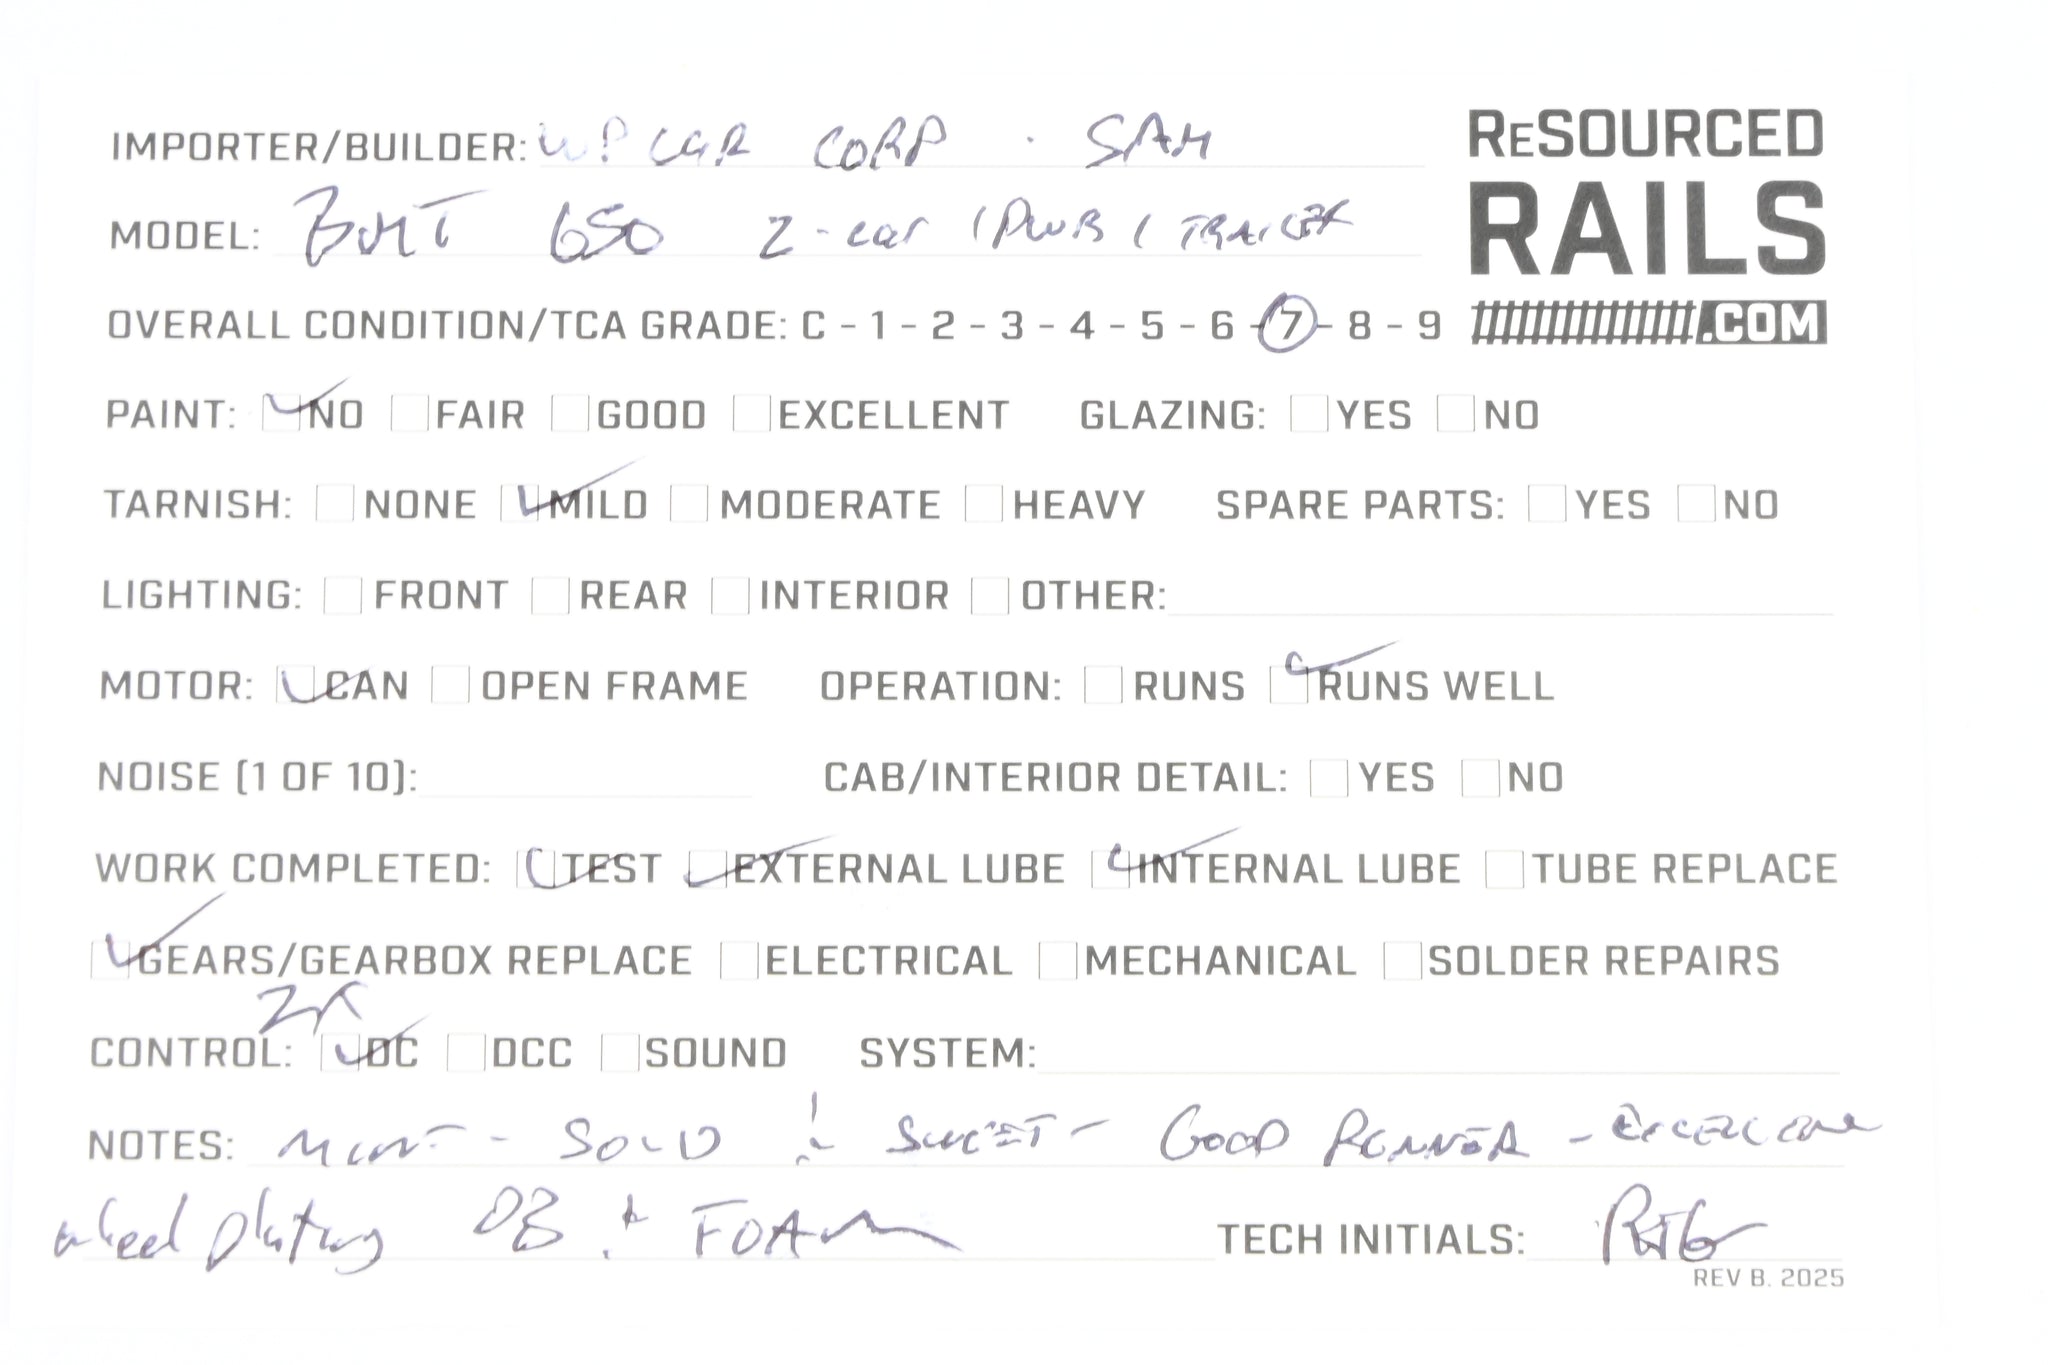 IMPORTER/BUILDER: WP CAR CORP . SAM
RESOURCED
RAILS
.COM
MODEL: BMT 650 2-car 1 PWR 1 TRAILER
OVERALL CONDITION/TCA GRADE: C - 1 - 2 - 3 - 4 - 5 - 6 - 7 - 8 - 9
PAINT: NO FAIR GOOD EXCELLENT GLAZING: YES NO
TARNISH: NONE MILD MODERATE HEAVY SPARE PARTS: YES NO
LIGHTING: FRONT REAR INTERIOR OTHER:
MOTOR: CAN OPEN FRAME OPERATION: RUNS RUNS WELL
NOISE (1 OF 10): CAB/INTERIOR DETAIL: YES NO
WORK COMPLETED: TEST EXTERNAL LUBE INTERNAL LUBE TUBE REPLACE
GEARS/GEARBOX REPLACE ELECTRICAL MECHANICAL SOLDER REPAIRS
2x
CONTROL: DC DCC SOUND SYSTEM:
NOTES: MINT - SOLID & SWEET - GOOD RUNNER - EXCELLENT
wheel plating OB & FOAM
TECH INITIALS:
REV B. 2025